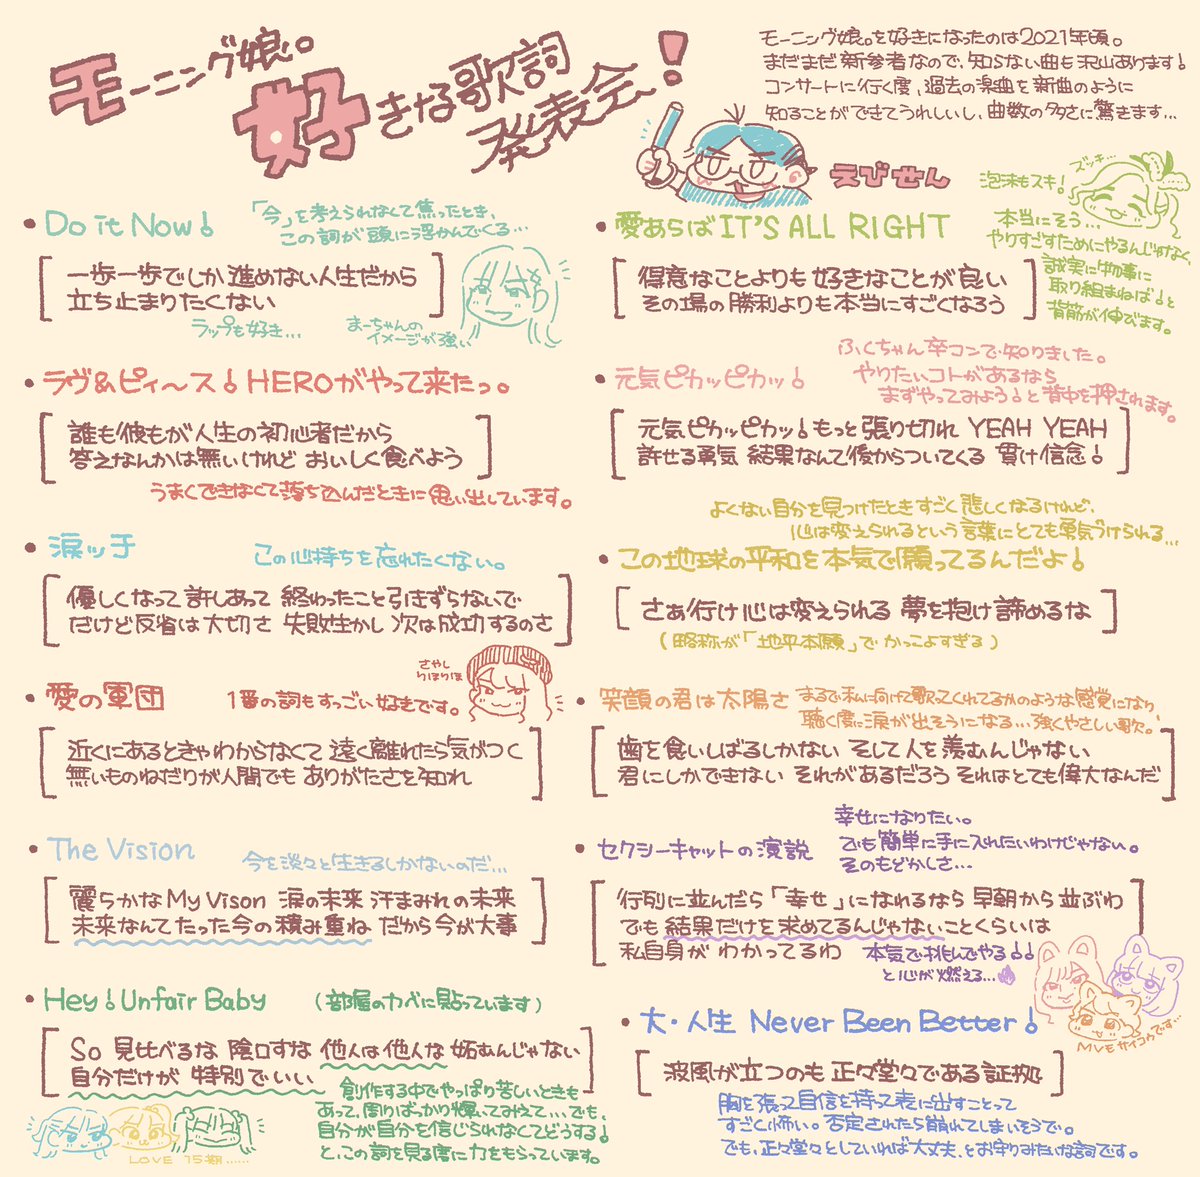 モーニング娘。
好きな歌詞
発表会!
モーニング娘。を好きになったのは2021年頃。
まだまだ新参者なので、知らない曲も沢山あります!
コンサートに行く度、過去の楽曲を新曲のように
知ることができてうれしいし、曲数の多さに驚きます…
えびせん
・Do it Now!
「今」を考えられなくて焦ったとき、
この詞が頭に浮かんでくる…
一歩一歩でしか進めない人生だから
立ち止まりたくない
ラップも好き…
まーちゃんの
イメージが強い
・ラヴ&ピィ〜ス!HEROがやって来たっ。
誰も彼もが人生の初心者だから
答えなんかは無いけれど おいしく食べよう
うまくできなくて落ち込んだときに思い出しています。
・涙ッ子
この心持ちを忘れたくない。
優しくなって許しあって 終わったこと引きずらないで
だけど反省は大切さ 失敗生かし 次は成功するのさ
・愛の軍団
1番の詞もすっごい好きです。
さやし
りほりほ
近くにあるときゃわからなくて 遠く離れたら気がつく
無いものねだりが人間でも ありがたさを知れ
・The Vision
今を淡々と生きるしかないのだ…
麗らかなMy Vison 涙の未来 汗まみれの未来
未来なんてたった今の積み重ね だから今が大事
・Hey!Unfair Baby
(部屋のカベに貼っています)
So 見比べるな 陰口すな 他人は他人な 妬むんじゃない
自分だけが 特別でいい
創作する中でやっぱり苦しいときも
あって、周りばっかり輝いてみえて…でも、
自分が自分を信じられなくてどうする!
と、この詞を見る度に力をもらっています。
LOVE 15期……
・愛あらばIT'S ALL RIGHT
泡沫もスキ!
ズッキ…
本当にそう…
やりすごすためにやるんじゃなく、
誠実に物事に
取り組まねば!と
背筋が伸びます。
得意なことよりも 好きなことが良い
その場の勝利よりも本当にすごくなろう
・元気ピカッピカッ!
ふくちゃん卒コンで知りました。
やりたいコトがあるなら
まずやってみよう!と背中を押されます。
元気ピカッピカッ!もっと張り切れ YEAH YEAH
許せる勇気 結果なんて後からついてくる 貫け信念!
よくない自分を見つけたときすごく悲しくなるけれど、
心は変えられるという言葉にとても勇気づけられる…
・この地球の平和を本気で願ってるんだよ!
さあ行け心は変えられる 夢を抱け諦めるな
(略称が「地平本願」でかっこよすぎる)
・笑顔の君は太陽さ
まるで私に向けて歌ってくれてるかのような感覚になり、
聴く度に涙が出そうになる…強くやさしい歌。
歯を食いしばるしかない そして人を羨むんじゃない
君にしかできない それがあるだろう それはとても偉大なんだ
・セクシーキャットの演説
幸せになりたい。
でも簡単に手に入れたいわけじゃない。
そのもどかしさ…
行列に並んだら「幸せ」になれるなら 早朝から並ぶわ
でも結果だけを求めてるんじゃないことくらいは
私自身が わかってるわ
本気で挑んでやる!!
と心が燃える…
MVもサイコウです…
・大・人生 Never Been Better!
波風が立つのも 正々堂々である証拠
胸を張って自信を持って表に出すことって
すごく怖い。否定されたら崩れてしまいそうで。
でも、正々堂々としていれば大丈夫、とお守りみたいな詞です。